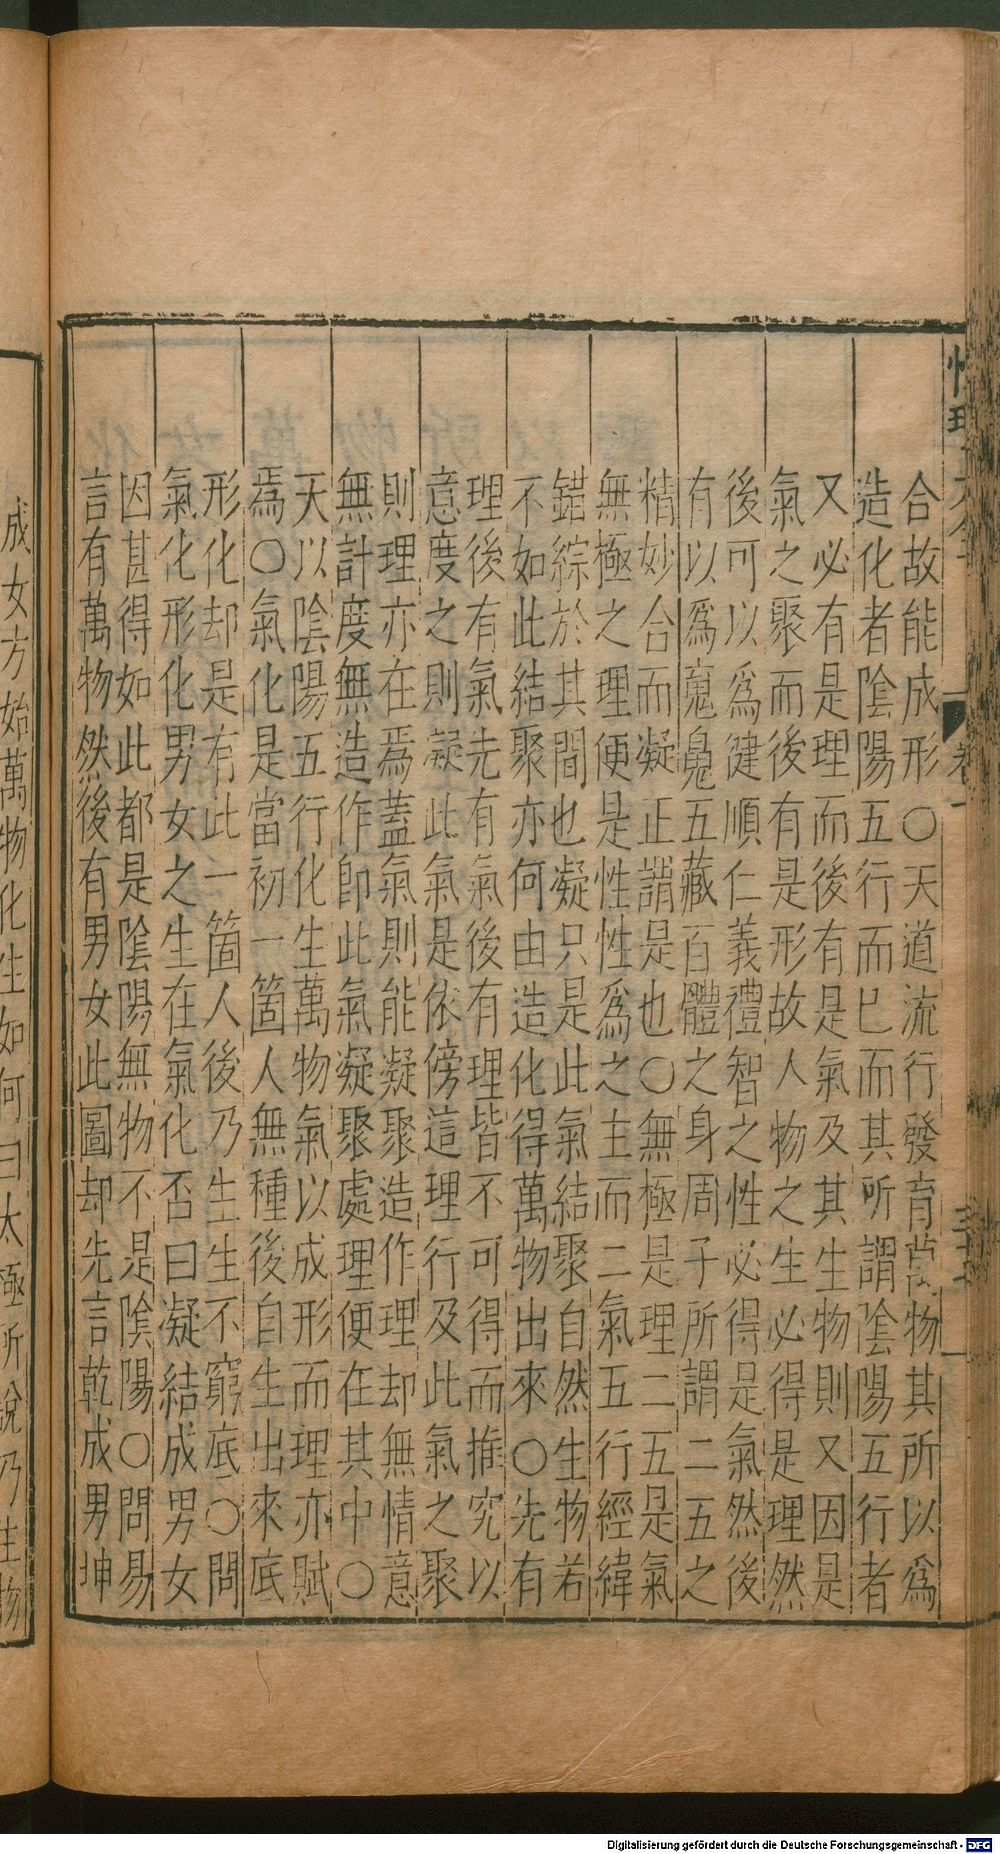 合故能成形○天道流行發育萬物其所以爲
造化者陰陽五行而已而其所謂陰陽五行者
又必有是理而後有是氣及其生物則又因是
氣之聚而後有是形故人物之生必得是理然
後可以爲健順仁義禮智之性必得是氣然後
有以爲䰟鬼五藏百體之身周子所謂二五之
精妙合而凝正謂是也○無極是理二五是氣
無極之理便是性性爲之主而二氣五行經緯
錯綜於其間也凝只是此氣結聚自然生物若
不如此結聚亦何由造化得萬物出來○先有
理後有氣先有氣後有理皆不可得而推究以
意度之則凝此氣是依傍這理行及此氣之聚
則理亦在焉蓋氣則能凝聚造作理却無情意
無計度無造作卽此氣凝聚處理便在其中○
天以陰陽五行化生萬物氣以成形而理亦賦
焉○氣化是當初一箇人無種後自生出來底
形化却是有此一箇人後乃生生不窮底○問
氣化形化男女之生在氣化否曰凝結成男女
因甚得如此都是陰陽無物不是陰陽○問易
言有萬物然後有男女此圖却先言乾成男坤
成女方始萬物化生如何曰太極所說乃生物
Digitalisierung gefördert durch die Deutsche Forschungsgemeinschaft - DFG